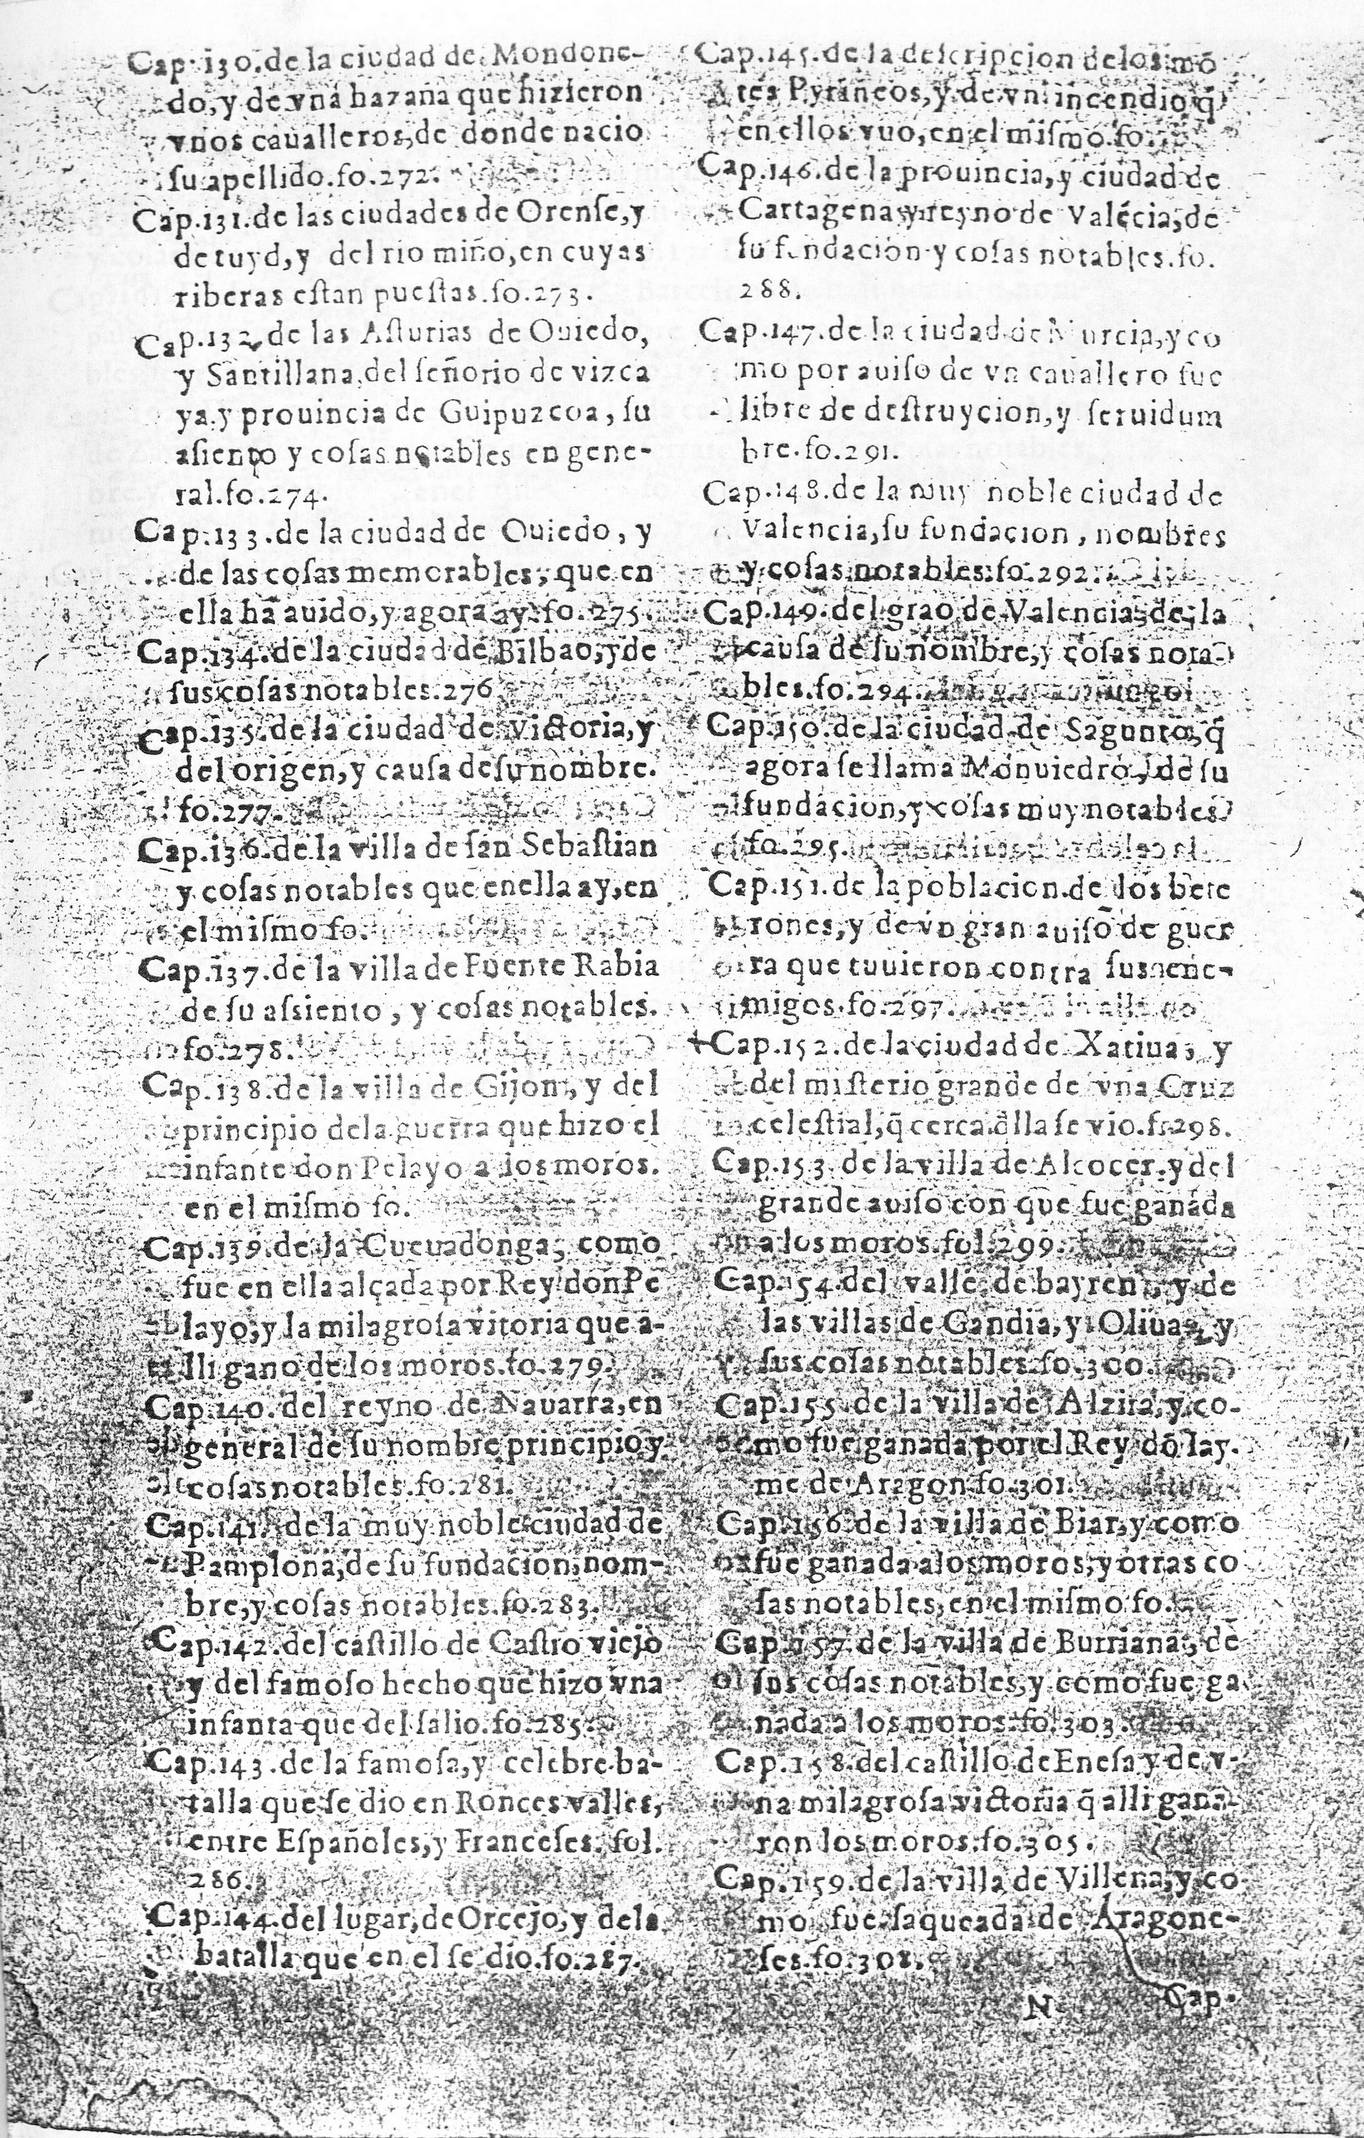 Cap. 130. de la ciudad de Mondoñe-
do, y de vna hazaña que hizieron
vnos caualleros, de donde nacio
su apellido. fo. 272.
Cap. 131. de las ciudades de Orense, y
de tuyd, y del rio miño, en cuyas
riberas estan puestas. fo. 273.
Cap. 132. de las Asturias de Ouiedo,
y Santillana, del señorio de vizca
ya. y prouincia de Guipuzcoa, su
asiento y cosas notables en gene-
ral. fo. 274.
Cap. 133. de la ciudad de Ouiedo, y
de las cosas memorables, que en
ella hã auido, y agora ay. fo. 275.
Cap. 134. de la ciudad de Bilbao, y de
sus cosas notables. 276
Cap. 135. de la ciudad de Victoria, y
del origen, y causa de su nombre.
fo. 277.
Cap. 136. de la villa de san Sebastian
y cosas notables que en ella ay, en
el mismo fo.
Cap. 137. de la villa de Fuente Rabia
de su assiento, y cosas notables.
fo. 278.
Cap. 138. de la villa de Gijon, y del
principio de la guerra que hizo el
infante don Pelayo a los moros.
en el mismo fo.
Cap. 139. de la Cueuadonga, como
fue en ella alçada por Rey don Pe
layo, y la milagrosa vitoria que a-
lli gano de los moros. fo. 279.
Cap. 140. del reyno de Nauarra, en
general de su nombre principio y
cosas notables. fo. 281.
Cap. 141. de la muy noble ciudad de
Pamplona, de su fundacion, nom-
bre, y cosas notables. fo. 283.
Cap. 142. del castillo de Castro viejo
y del famoso hecho que hizo vna
infanta que del salio. fo. 285.
Cap. 143. de la famosa, y celebre ba-
talla que se dio en Ronces valles,
entre Españoles, y Franceses. fol.
286.
Cap. 144. del lugar, de Orcejo, y de la
batalla que en el se dio. fo. 287.
Cap. 145. de la descripcion de los mõ
tes Pyrineos, y de vn incendio q̃
en ellos vuo, en el mismo. fo.
Cap. 146. de la prouincia, y ciudad de
Cartagena y reyno de Valẽcia, de
su fundacion y cosas notables. fo.
288.
Cap. 147. de la ciudad de Murcia, y co
mo por auiso de vn cauallero fue
libre de destruycion, y seruidum
bre. fo. 291.
Cap. 148. de la muy noble ciudad de
Valencia, su fundacion, nombres
y cosas notables. fo. 292.
Cap. 149. del grao de Valencia, de la
causa de su nombre, y cosas nota-
bles. fo. 294.
Cap. 150. de la ciudad de Sagunto, q̃
agora se llama Monuiedro, de su
fundacion, y cosas muy notables
fo. 295.
Cap. 151. de la poblacion de los bete
rones, y de vn gran auiso de guer
ra que tuuieron contra sus ene-
migos. fo. 297.
Cap. 152. de la ciudad de Xatiua, y
del misterio grande de vna Cruz
celestial, q̃ cerca ella se vio. f. 298.
Cap. 153. de la villa de Alcocer, y del
grande auiso con que fue ganada
a los moros. fol. 299.
Cap. 154. del valle de bayren, y de
las villas de Gandia, y Oliua, y
sus cosas notables. fo. 300.
Cap. 155. de la villa de Alzira, y co-
mo fue ganada por el Rey dõ Iay-
me de Aragon. fo. 301.
Cap. 156. de la villa de Biar, y como
fue ganada a los moros, y otras co
sas notables, en el mismo fo.
Cap. 157. de la villa de Burriana, de
sus cosas notables, y como fue ga
nada a los moros. fo. 303.
Cap. 158. del castillo de Enesa y de v-
na milagrosa victoria q̃ alli gana-
ron los moros. fo. 305.
Cap. 159. de la villa de Villena, y co
mo fue saqueada de Aragone-
ses. fo. 308.
N Cap.